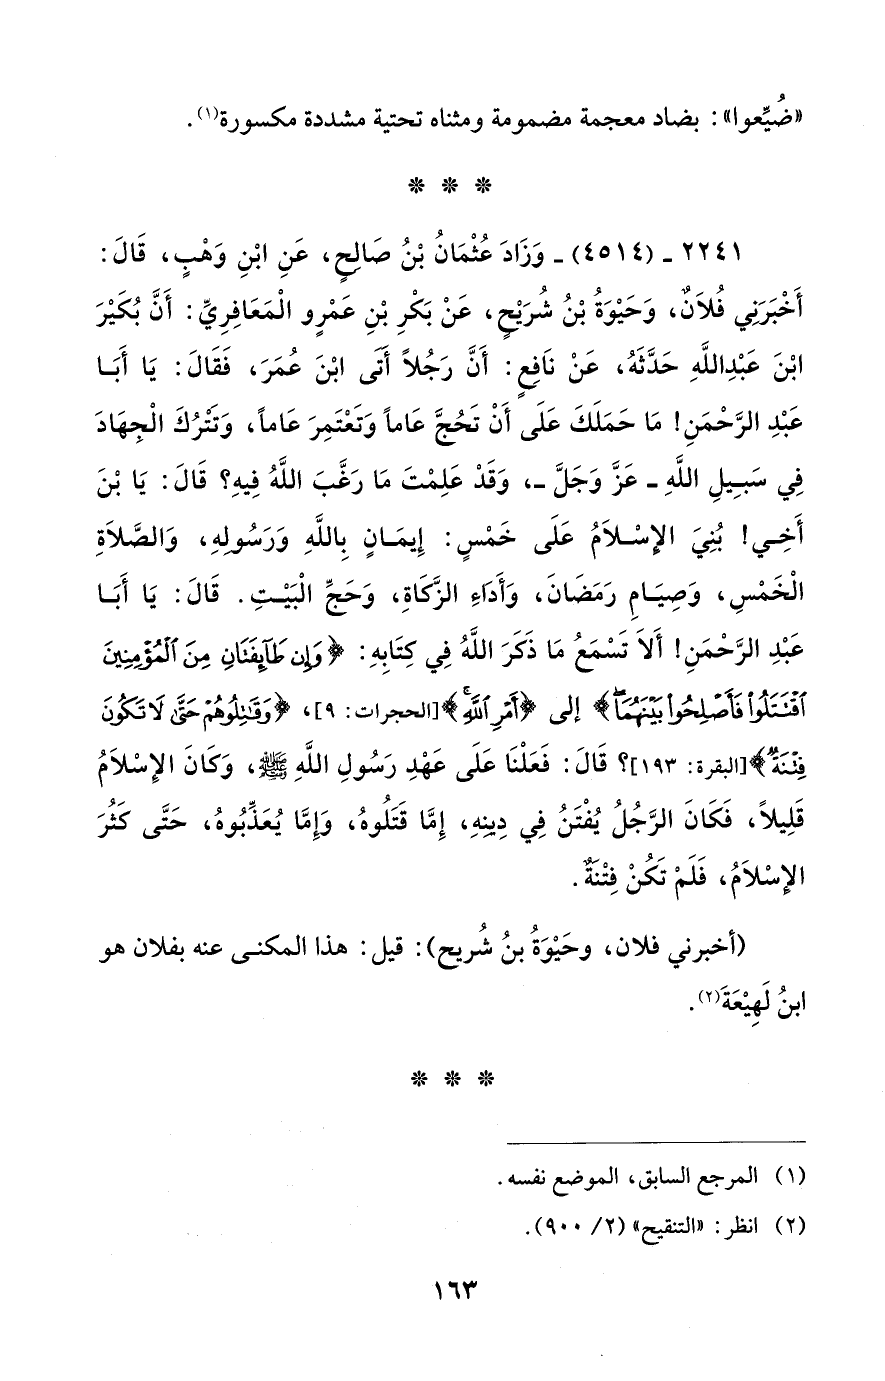 «ضُيِّعوا»: بضاد معجمة مضمومة ومثناه تحتية مشددة مكسورة(١).
* * *
٢٢٤١ ـ (٤٥١٤) ـ وَزَادَ عُثْمَانُ بْنُ صَالِحٍ، عَنِ ابْنِ وَهْبٍ، قَالَ:
أَخْبَرَنِي فُلاَنٌ، وَحَيْوَةُ بْنُ شُرَيْحٍ، عَنْ بَكْرِ بْنِ عَمْرٍو الْمَعَافِرِيِّ: أَنَّ بُكَيْرَ
ابْنَ عَبْدِاللَّهِ حَدَّثَهُ، عَنْ نَافِعٍ: أَنَّ رَجُلاً أَتَى ابْنَ عُمَرَ، فَقَالَ: يَا أَبَا
عَبْدِ الرَّحْمَنِ! مَا حَمَلَكَ عَلَى أَنْ تَحُجَّ عَاماً وَتَعْتَمِرَ عَاماً، وَتَتْرُكَ الْجِهَادَ
فِي سَبِيلِ اللَّهِ ـ عَزَّ وَجَلَّ ـ، وَقَدْ عَلِمْتَ مَا رَغَّبَ اللَّهُ فِيهِ؟ قَالَ: يَا بْنَ
أَخِي! بُنِيَ الإِسْلاَمُ عَلَى خَمْسٍ: إِيمَانٍ بِاللَّهِ وَرَسُولِهِ، وَالصَّلاَةِ
الْخَمْسِ، وَصِيَامِ رَمَضَانَ، وَأَدَاءِ الزَّكَاةِ، وَحَجِّ الْبَيْتِ. قَالَ: يَا أَبَا
عَبْدِ الرَّحْمَنِ! أَلاَ تَسْمَعُ مَا ذَكَرَ اللَّهُ فِي كِتَابِهِ: ﴿وَإِن طَآئِفَتَانِ مِنَ ٱلْمُؤْمِنِينَ
ٱقْتَتَلُوا۟ فَأَصْلِحُوا۟ بَيْنَهُمَا ۖ﴾ إلى ﴿أَمْرِ ٱللَّهِ ۚ﴾[الحجرات: ٩]، ﴿وَقَٰتِلُوهُمْ حَتَّىٰ لَا تَكُونَ
فِتْنَةٌ﴾[البقرة: ١٩٣]؟ قَالَ: فَعَلْنَا عَلَى عَهْدِ رَسُولِ اللَّهِ ﷺ، وَكَانَ الإِسْلاَمُ
قَلِيلاً، فَكَانَ الرَّجُلُ يُفْتَنُ فِي دِينِهِ، إِمَّا قَتَلُوهُ، وَإِمَّا يُعَذِّبُوهُ، حَتَّى كَثُرَ
الإِسْلاَمُ، فَلَمْ تَكُنْ فِتْنَةٌ.
(أخبرني فلان، وحَيْوَةُ بنُ شُريح): قيل: هذا المكنى عنه بفلان هو
ابنُ لَهِيْعَةَ(٢).
* * *
(١) المرجع السابق، الموضع نفسه.
(٢) انظر: «التنقيح» (٢/ ٩٠٠).
١٦٣